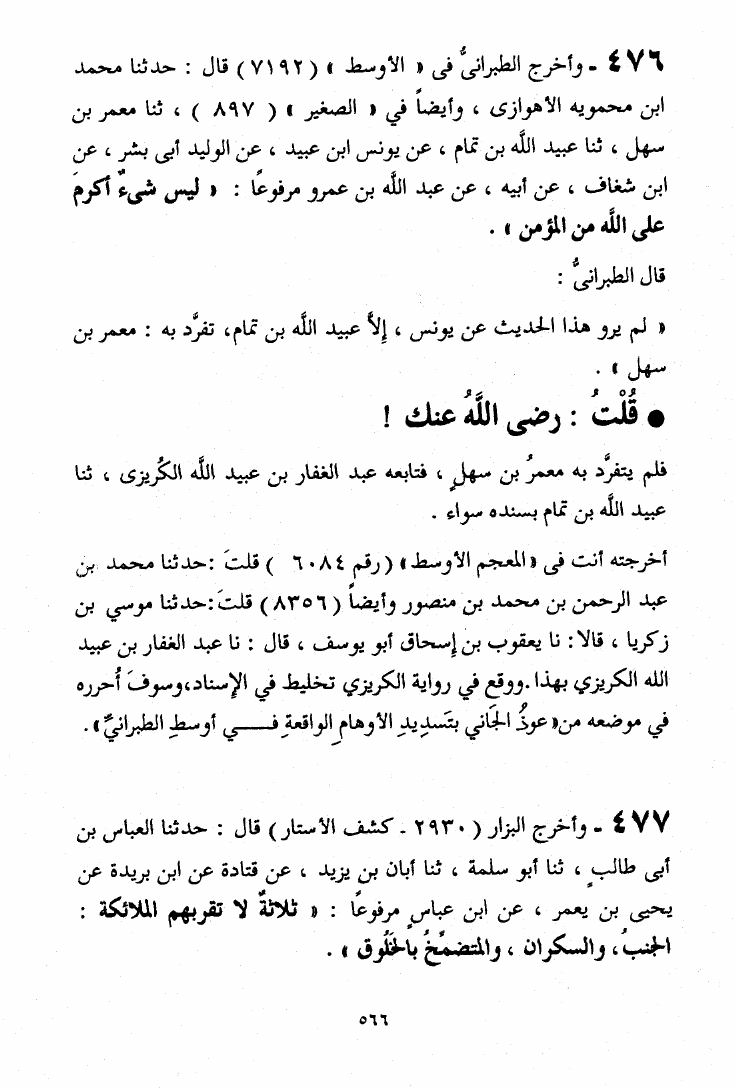 ٤٧٦ - وأخرج الطبرانىُّ فى « الأوسط » (٧١٩٢) قال : حدثنا محمد
ابن محمويه الأهوازى ، وأيضاً في « الصغير » ( ٨٩٧ ) ، ثنا معمر بن
سهل ، ثنا عبيد اللَّه بن تمام ، عن يونس ابن عبيد ، عن الوليد أبى بشر ، عن
ابن شغاف ، عن أبيه ، عن عبد اللَّه بن عمرو مرفوعًا : « ليس شىءٌ أكرمَ
على اللَّه من المؤمن » .
قال الطبرانىُّ :
« لم يرو هذا الحديث عن يونس ، إلاَّ عبيد اللَّه بن تمام، تفرَّد به : معمر بن
سهل » .
● قُلْتُ : رضى اللَّهُ عنك !
فلم يتفرَّد به معمرُ بن سهلٍ ، فتابعه عبد الغفار بن عبيد اللَّه الكُريزى ، ثنا
عبيد اللَّه بن تمام بسنده سواء .
أخرجته أنت فى «المعجم الأوسط» (رقم ٦٠٨٤ ) قلتَ :حدثنا محمد بن
عبد الرحمن بن محمد بن منصور وأيضاً (٨٣٥٦) قلتَ:حدثنا موسي بن
زكريا ، قالا: نا يعقوب بن إسحاق أبو يوسف ، قال : نا عبد الغفار بن عبيد
الله الكريزي بهذا.ووقع في رواية الكريزي تخليط في الإسناد،وسوفَ أُحرره
في موضعه من«عوذُ الجَاني بتَسديدِ الأوهامِ الواقعةِ فـــي أوسطِ الطبرانيِّ».
٤٧٧ - وأخرج البزار (٢٩٣٠ - كشف الأستار) قال : حدثنا العباس بن
أبى طالبٍ ، ثنا أبو سلمة ، ثنا أبان بن يزيد ، عن قتادة عن ابن بريدة عن
يحيى بن يعمر ، عن ابن عباسٍ مرفوعًا : « ثلاثةٌ لا تقربهم الملائكة :
الجنبُ، والسكران ، والمتضمِّخُ بالخَلُوق » .
٥٦٦